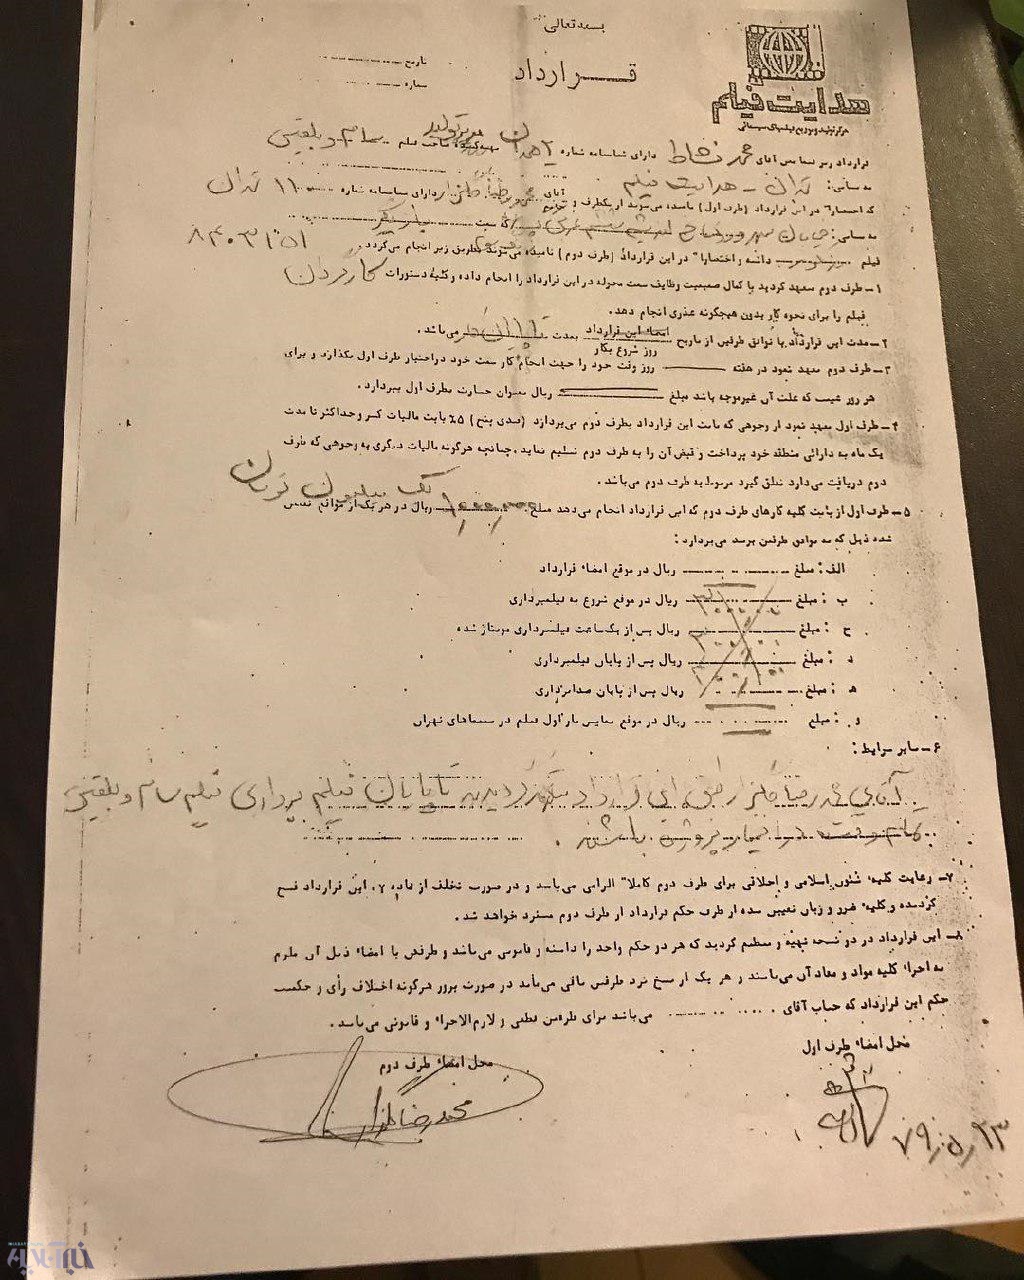 بسمه تعالی
قرارداد
تاریخ
شماره
هدایت فیلم
مرکز تولید و توزیع فیلمهای سینمائی
قرارداد زیر فیمابین آقای محمد نشاط دارای شناسنامه شماره صاحب فیلم سام و بلقیس
به نشانی: تهران - هدایت فیلم
که اختصاراً در این قرارداد (طرف اول) نامیده می‌شوند از یکطرف و آقای محمدرضا گلزار دارای شناسنامه شماره ۱۱ تهران
به نشانی: خیابان که سمت بازیگر
۸۴۰۳۱۵۱
فیلم را داشته و اختصاراً در این قرارداد (طرف دوم) نامیده می‌شوند بطریق زیر انجام می‌گردد.
۱- طرف دوم متعهد گردید با کمال صمیمیت وظایف سمت محوله در این قرارداد را انجام داده و کلیهٔ دستورات کارگردان
فیلم را برای نحوه کار بدون هیچگونه عذری انجام دهد.
۲- مدت این قرارداد با توافق طرفین از تاریخ امضاء این قرارداد / روز شروع بکار بمدت تا پایان می‌باشد.
۳- طرف دوم متعهد نمود در هفته روز وقت خود را جهت انجام کار سمت خود در اختیار طرف اول بگذارد و برای
هر روز غیبت که علت آن غیرموجه باشد مبلغ ریال بعنوان خسارت بطرف اول بپردازد.
۴- طرف اول متعهد نمود از وجوهی که بابت این قرارداد بطرف دوم می‌پردازد (صدی پنج) ۵٪ بابت مالیات کسر و حداکثر تا مدت
یک ماه به دارائی منطقه خود پرداخت و قبض آن را به طرف دوم تسلیم نماید. چنانچه هرگونه مالیات دیگری به وجوهی که طرف
دوم دریافت می‌دارد تعلق گیرد مربوط به طرف دوم می‌باشد.
یک میلیون تومان
۵- طرف اول از بابت کلیه کارهای طرف دوم که این قرارداد انجام می‌دهد مبلغ ریال در هر یک از مواقع تعیین
شده ذیل که به توافق طرفین برسد می‌پردازد:
الف: مبلغ ریال در موقع امضاء قرارداد
ب: مبلغ ریال در موقع شروع به فیلمبرداری
ج: مبلغ ریال پس از یکساعت فیلمبرداری مونتاژ شده
د: مبلغ ریال پس از پایان فیلمبرداری
ه: مبلغ ریال پس از پایان صدابرداری
و: مبلغ ریال در موقع نمایش بار اول فیلم در سینماهای تهران
۶- سایر شرایط:
آقای محمدرضا گلزار طبق این قرارداد متعهد گردیدند تا پایان فیلم برداری فیلم سام و بلقیس
تمام وقت در اختیار پروژه باشند.
۷- رعایت کلیه شئون اسلامی و اخلاقی برای طرف دوم کاملاً الزامی می‌باشد و در صورت تخلف از ماده ۷، این قرارداد فسخ
گردیده و کلیه ضرر و زیان تعیین شده از طرف حکم قرارداد از طرف دوم مسترد خواهد شد.
۸- این قرارداد در دو نسخه تهیه و تنظیم گردید که هر دو حکم واحد را داشته و قانونی می‌باشد و طرفین با امضاء ذیل آن ملزم
به اجراء کلیه مواد و مفاد آن می‌باشند و هر یک از نسخ نزد طرفین باقی می‌ماند در صورت بروز هرگونه اختلاف رأی و حکمیت
حکم این قرارداد که جناب آقای می‌باشد برای طرفین قطعی و لازم‌الاجراء و قانونی می‌باشد.
محل امضاء طرف اول
محل امضاء طرف دوم
محمدرضا گلزار
۷۹/۵/۲۳
خبرآنلاین